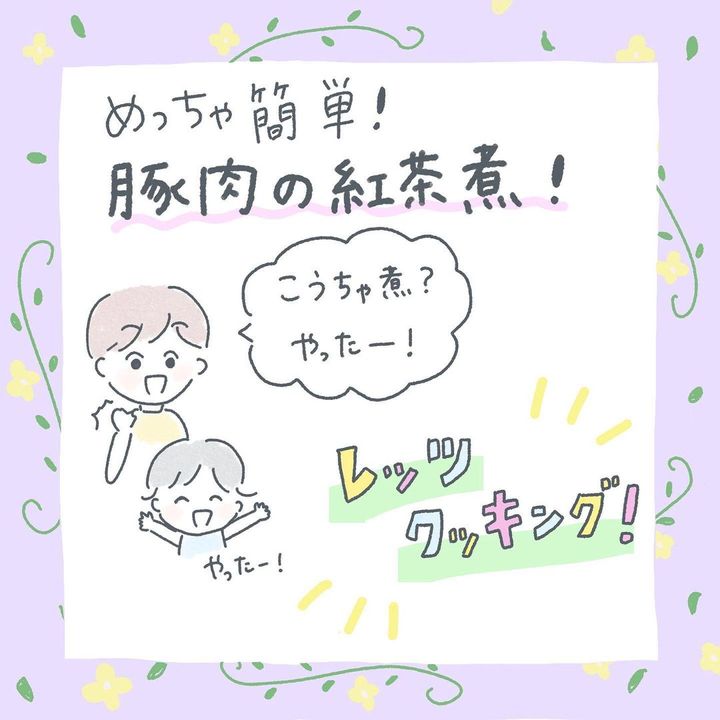 めっちゃ簡単!
豚肉の紅茶煮!
こうちゃ煮?
やったー!
やったー!
レッツ
クッキング!